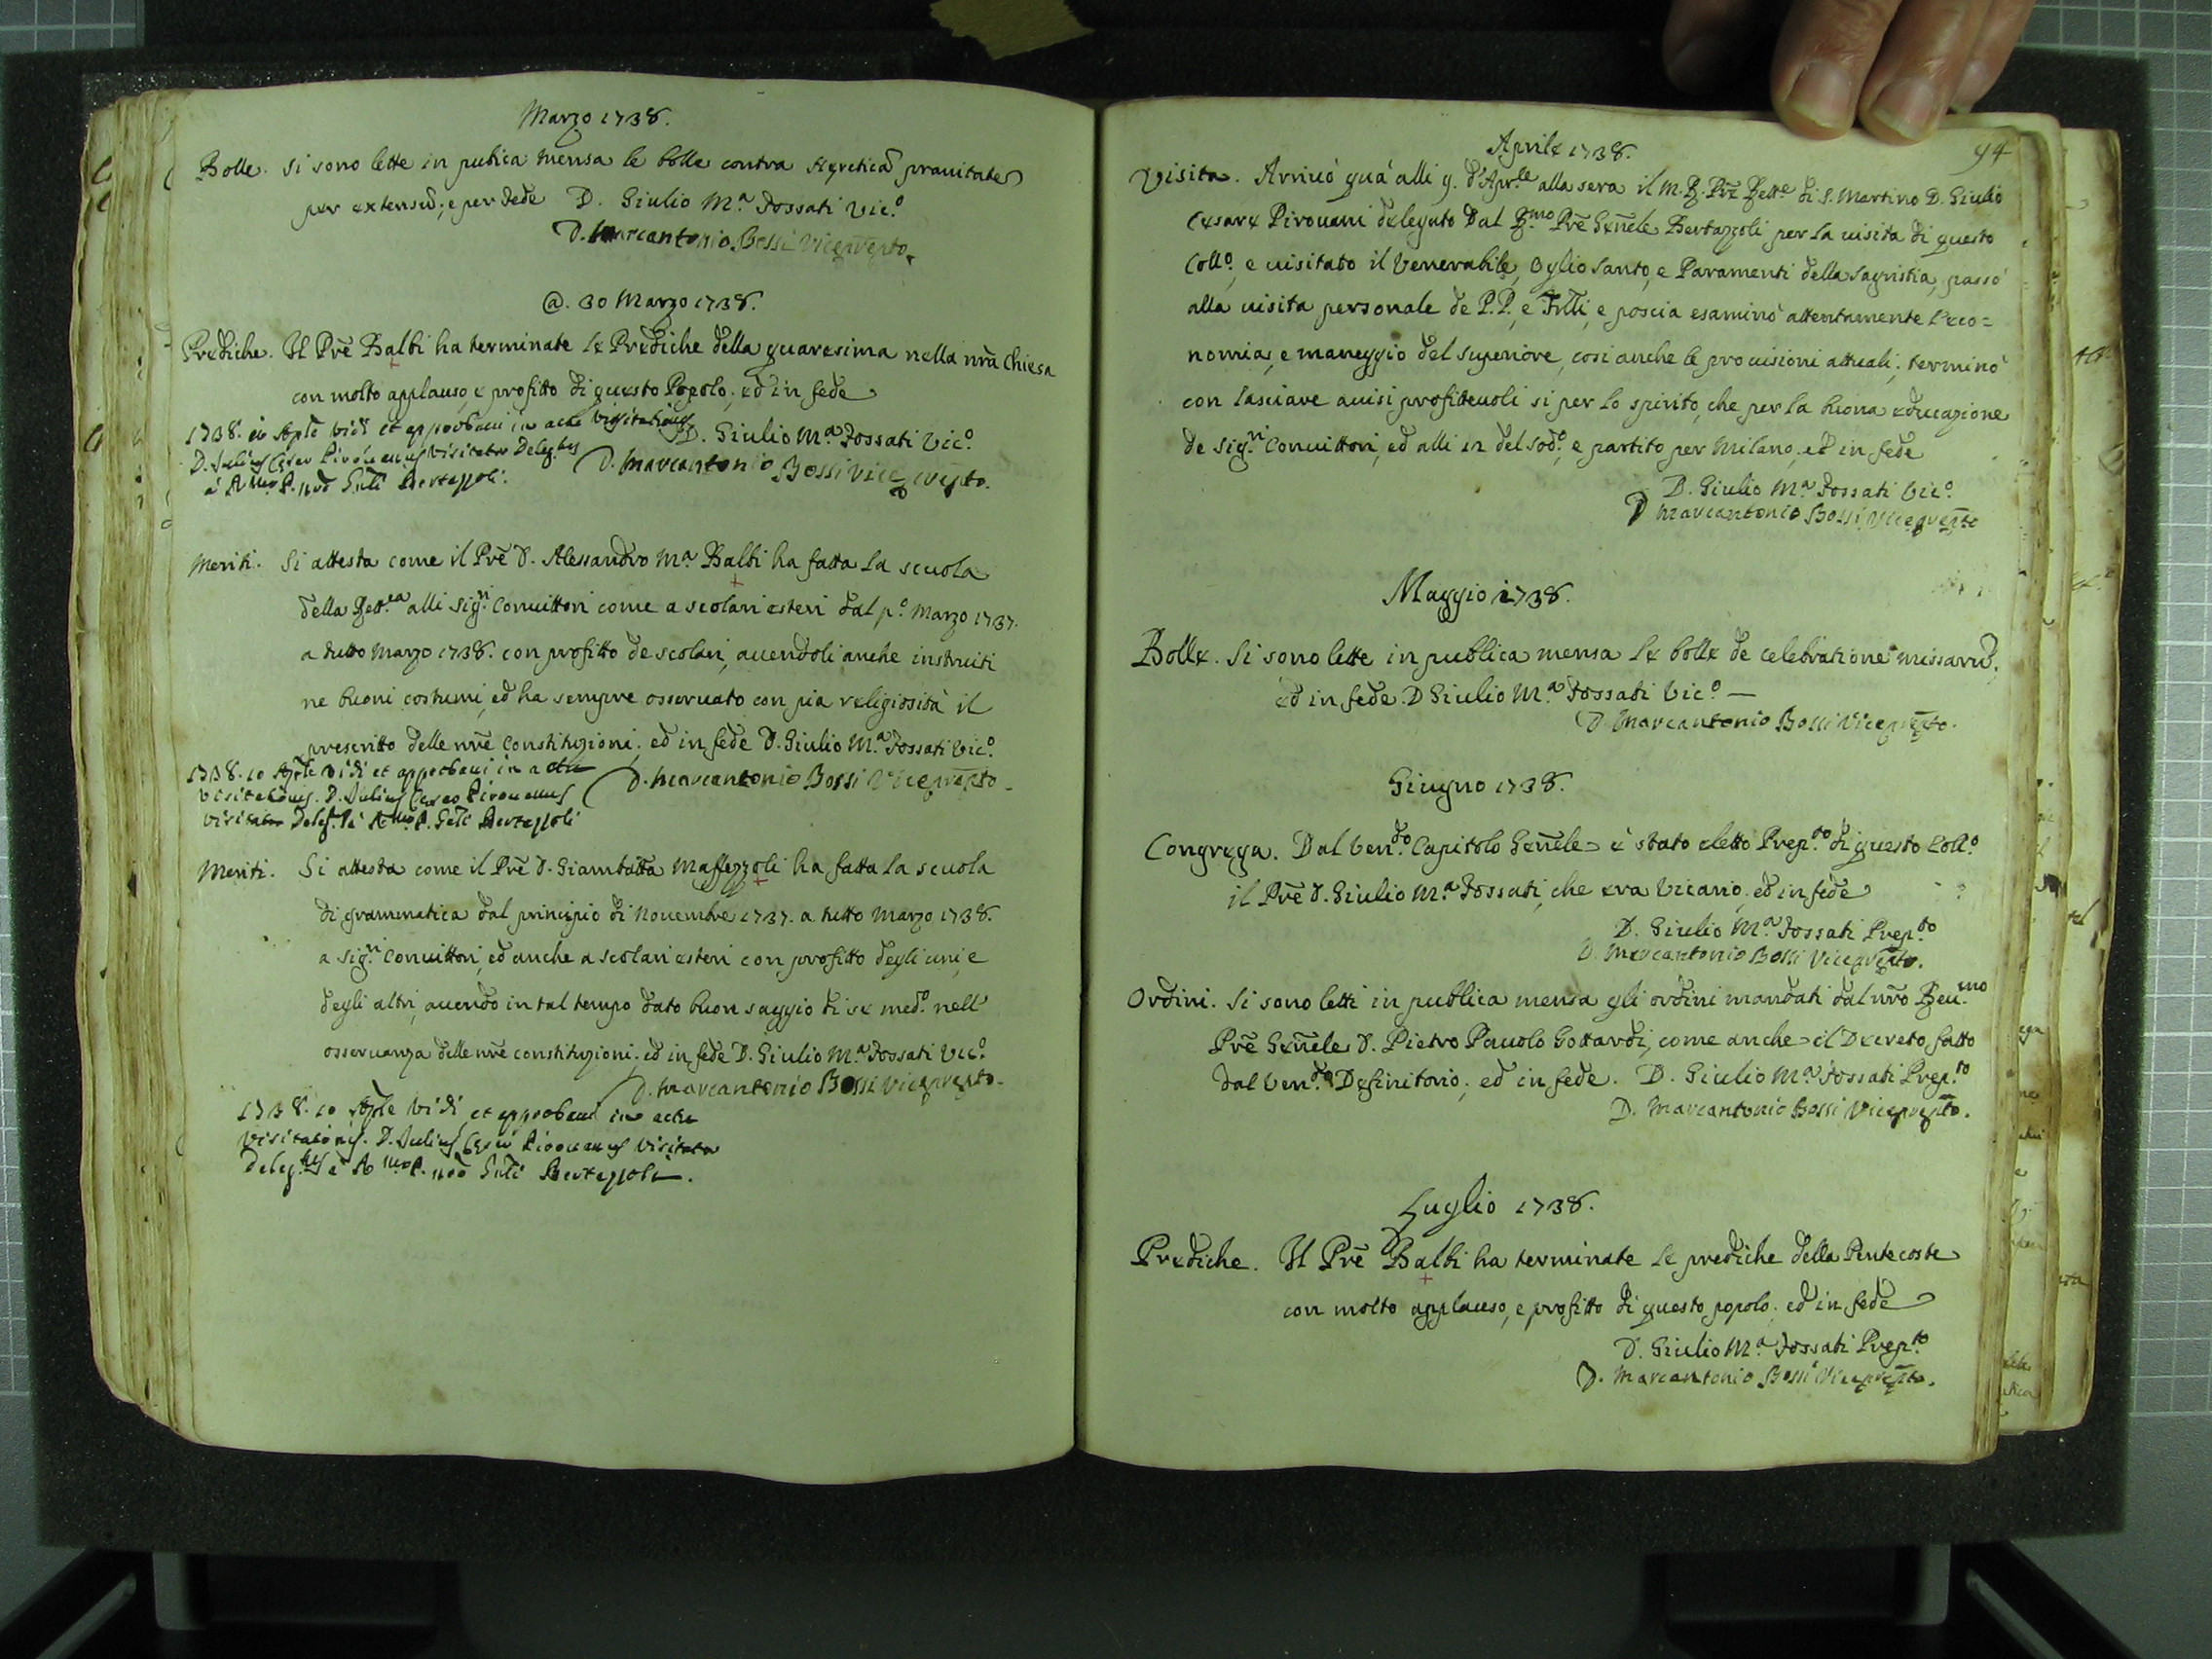 Marzo 1738.
Bolle. Si sono lette in publica mensa le bolle contra Hęreticã prauitatẽ
per extensũ; e per fede D. Giulio M.ª Fossati Vic.º
D. Marcantonio Bossi Viceprepto.
@. 30 Marzo 1738.
Prediche. Il Prẽ Balbi ha terminate le Prediche della quaresima nella nrã Chiesa
con molto applauso, e profitto di questo Popolo; ed in fede
1738. 10 Aple vidi et approbaui in actu visitationis
D. Giulio M.ª Fossati Vic.º
D. Julius Cęsar Pirouanus Visitator Delegtus
D. Marcantonio Bossi Viceprepto.
a Rmo P. nro Gnli Bertazzoli.
Meriti. Si attesta come il Prẽ D. Alessandro M.ª Balbi ha fatta la scuola
della Rett.ca alli Sig.ri Conuittori come a scolari esteri dal p.º Marzo 1737.
a tutto Marzo 1738. con profitto de scolari, auendoli anche instruiti
ne buoni costumi, ed ha sempre osseruato con pia religiosità il
prescritto delle nrẽ Constituzioni; ed in fede D. Giulio M.ª Fossati Vic.º
1738. 10 Aple vidi et approbaui in actu
D. Marcantonio Bossi Viceprepto.
visitationis. D. Julius Cęsar Pirouanus
visitator Deleg. a Rmo P. Gnli Bertazzoli
Meriti. Si attesta come il Prẽ D. Giambatta Maffezzoli ha fatta la scuola
di grammatica dal principio di Nouembre 1737. a tutto Marzo 1738.
a Sig.ri Conuittori, ed anche a scolari esteri con profitto degli uni, e
degli altri, auendo in tal tempo dato buon saggio di se med.º nell'
osseruanza delle nrẽ constituzioni; ed in fede D. Giulio M.ª Fossati Vic.º
D. Marcantonio Bossi Viceprepto.
1738. 10 Aple vidi, et approbaui in actu
Visitationis. D. Julius Cęsar Pirouanus Visitator
Deleg.tus a Rmo P. nro Gnli Bertazzoli.
94
Aprile 1738.
Visita. Arriuò quà alli 9. d'Apr.le alla sera il M. R. Prẽ Rett.e di S. Martino D. Giulio
Cesare Pirouani delegato dal R.mo Prẽ Gẽnle Bertazzoli per la uisita di questo
Coll.º, e uisitato il Venerabile, Oglio Santo, e Paramenti della Sagristia, passò
alla uisita personale de P.P., e Frlli, e poscia esaminò attentamente l'eco=
nomia, e maneggio del superiore, così anche le prouisioni attuali; terminò
con lasciare auisi profitteuoli si per lo spirito, che per la buona educazione
de Sig.ri Conuittori, ed alli 11 del sod.º e partito per Milano, ed in fede
D. Giulio M.ª Fossati Vic.º
D Marcantonio Bossi Viceprepto
Maggio 1738.
Bolle. Si sono lette in publica mensa le bolle de celebratione missarũ;
ed in fede D Giulio M.ª Fossati Vic.º —
D. Marcantonio Bossi Viceprepto.
Giugno 1738.
Congrega. Dal Ven.do Capitolo Gẽnle è stato eletto Prep.to di questo Coll.º
il Prẽ D. Giulio M.ª Fossati, che era Vicario; ed in fede
D. Giulio M.ª Fossati Prep.to
D. Marcantonio Bossi Viceprepto.
Ordini. Si sono letti in publica mensa gli ordini mandati dal nrõ Reu.mo
Prẽ Gẽnle D. Pietro Pauolo Gottardi, come anche il Decreto fatto
dal Ven.do Definitorio; ed in fede. D. Giulio M.ª Fossati Prep.to
D. Marcantonio Bossi Viceprepto.
Luglio 1738.
Prediche. Il Prẽ Balbi ha terminate le prediche della Pentecoste
con molto applauso, e profitto di questo popolo; ed in fede
D. Giulio M.ª Fossati Prep.to
D. Marcantonio Bossi Viceprepto.